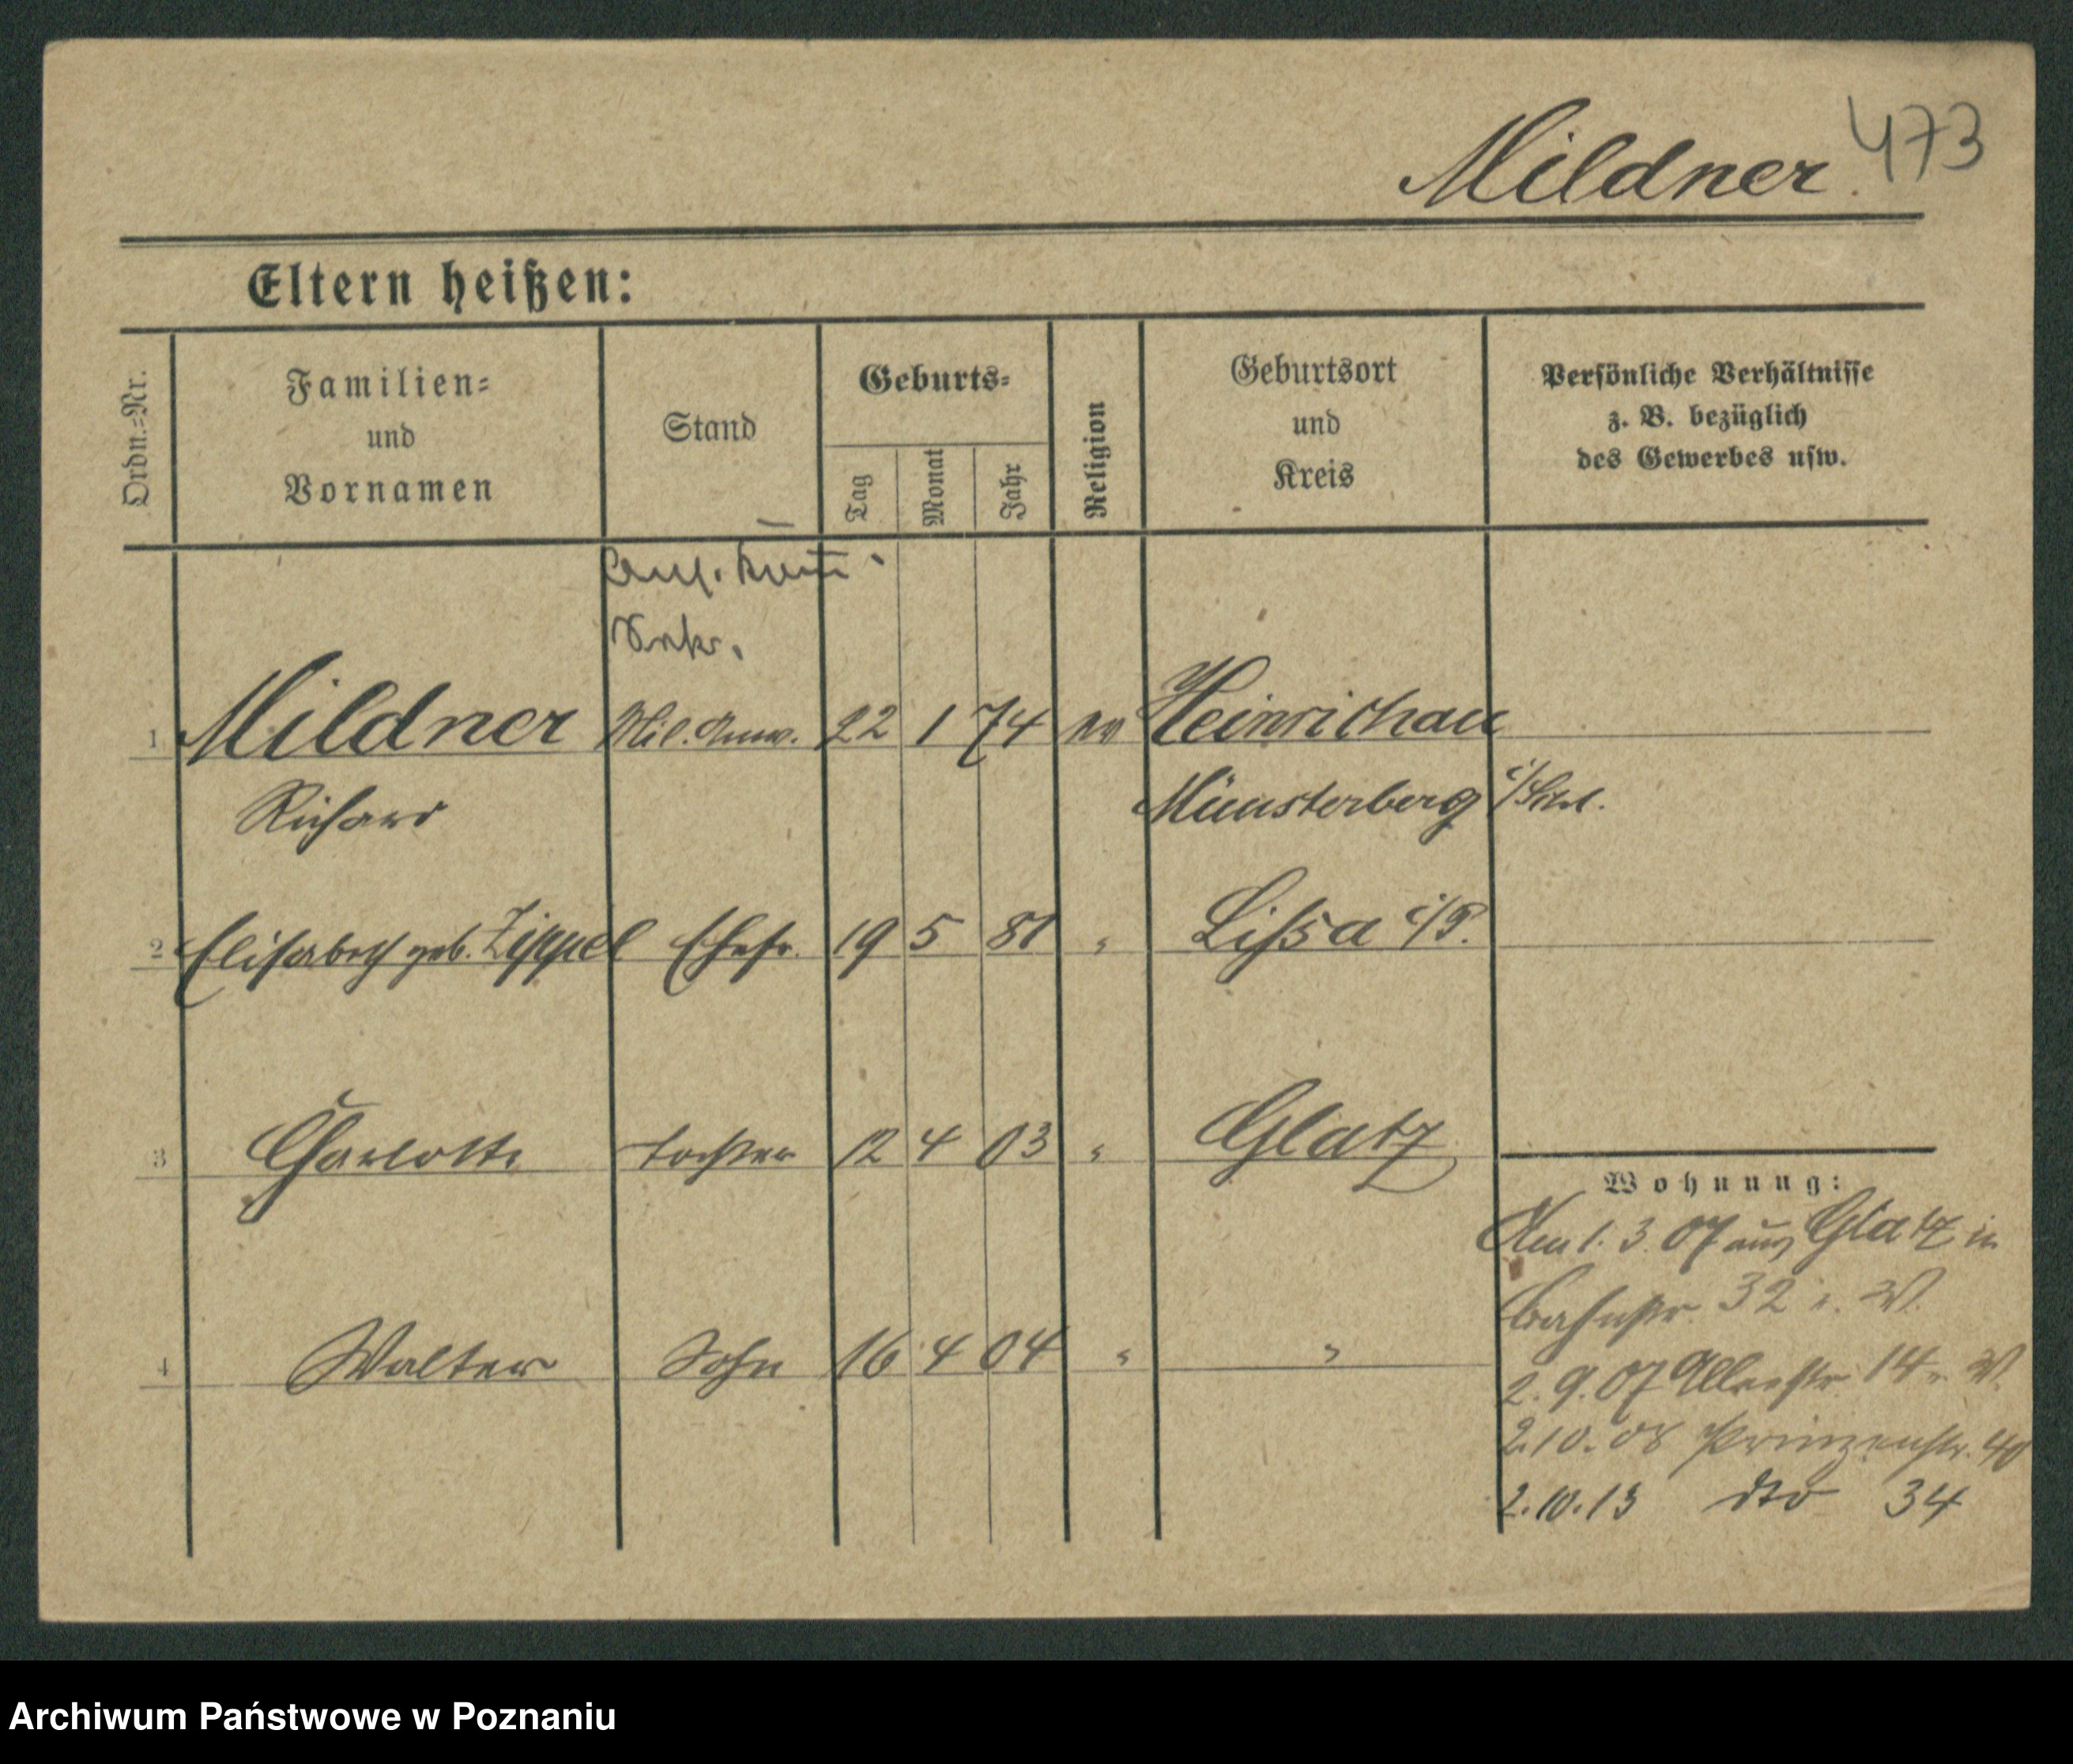 473
Mildner.
Eltern heißen:
Ordn.-Nr.
Familien-
und
Vornamen
Stand
Geburts-
Tag
Monat
Jahr
Religion
Geburtsort
und
Kreis
Persönliche Verhältnisse
z. B. bezüglich
des Gewerbes usw.
Sekr.
1 Mildner Mil. Anw. 22 1 74 ev Heinrichau
Richard Münsterberg i/Schl.
2 Elisabeth geb. Zippel Ehefr. 19 5 81 " Lissa i/P.
3 Charlotte Tochter 12 4 03 " Glatz
Wohnung:
Am 1. 3. 07 aus Glatz in
Bahnstr. 32 b. W.
4 Walter Sohn 16 4 04 " "
2. 9. 07 Alleestr. 14 b. W.
2.10.08 Prinzenstr. 40
2.10.13 dto 34
Archiwum Państwowe w Poznaniu